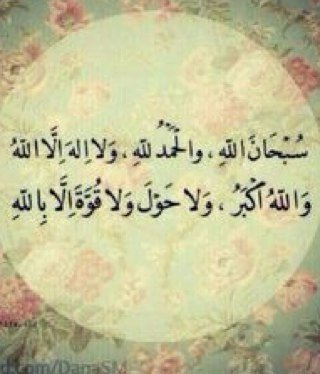 سُبْحَانَ اللّٰهِ ، والْحَمْدُ للّٰهِ ، وَلَا اِلٰهَ اِلَّا اللّٰهُ
وَاللّٰهُ اَكْبَرُ ، وَلَا حَوْلَ وَلَا قُوَّةَ اِلَّا بِاللّٰهِ
d.com/DanaSM